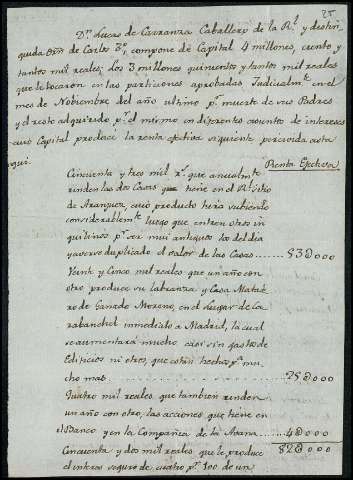 25
Dn. Lucas de Carranza Caballero de la Rl. y distin
guida Orn. de Carlos 3º, compone de Capital 4 millones, ciento y
tantos mil reales; los 3 millones quinientos y tantos mil reales
que le tocaron en las particiones aprobadas Judicialmte. en el
mes de Nobiembre del año ultimo pr. muerte de sus Padres
y el resto adquirido pr. el mismo en diferentes asientos de intereses
cuio Capital produce la renta efectiva siguiente percivida asta
aqui.
Renta Efectiva
Cincuenta y tres mil rs. que anualmte.
rinden las dos Casas que tiene en el Rl. sitio
de Aranjuez, cuio producto hirá subiendo
considerablemte. luego que entren otros in
quilinos pr. ser mui antiguos los del dia
y averse duplicado el valor de las Casas ...... 53@000
Veinte y Cinco mil reales que un año con
otro produce su labranza y Casa Matade
ro de Ganado Moreno, en el Lugar de Ca
rabanchel inmediato a Madrid, la cual
se aumentará mucho casi sin gasto de
Edificios ni otros, que están hechos pa. mu
cho mas ...... 25@000
Quatro mil reales que tambien rinden
un año con otro, las acciones que tiene en
el Banco y en la Compañia de la Abana ...... 4@000
82@000
Cincuenta y dos mil reales que le produce
el interes seguro de quatro pr. 100 de un